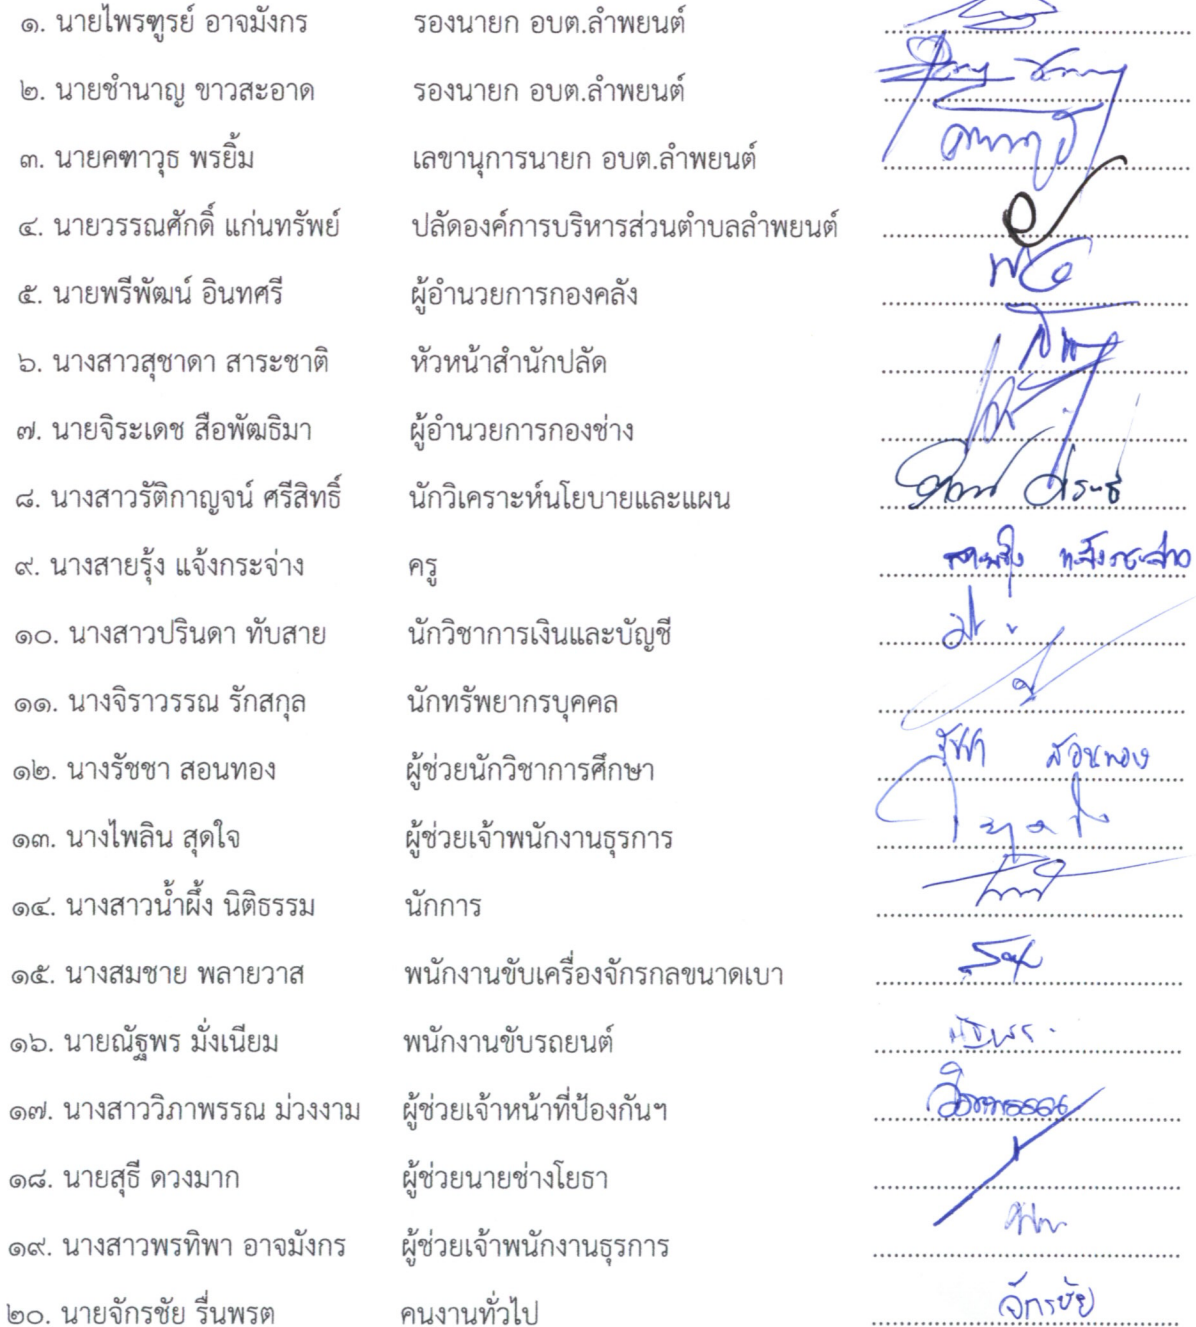 ๑. นายไพรฑูรย์ อาจมังกร รองนายก อบต.ลำพยนต์
๒. นายชำนาญ ขาวสะอาด รองนายก อบต.ลำพยนต์
๓. นายคฑาวุธ พรยิ้ม เลขานุการนายก อบต.ลำพยนต์
๔. นายวรรณศักดิ์ แก่นทรัพย์ ปลัดองค์การบริหารส่วนตำบลลำพยนต์
๕. นายพรีพัฒน์ อินทศรี ผู้อำนวยการกองคลัง
๖. นางสาวสุชาดา สาระชาติ หัวหน้าสำนักปลัด
๗. นายจิระเดช สือพัฒธิมา ผู้อำนวยการกองช่าง
๘. นางสาวรัติกาญจน์ ศรีสิทธิ์ นักวิเคราะห์นโยบายและแผน
๙. นางสายรุ้ง แจ้งกระจ่าง ครู
๑๐. นางสาวปรินดา ทับสาย นักวิชาการเงินและบัญชี
๑๑. นางจิราวรรณ รักสกุล นักทรัพยากรบุคคล
๑๒. นางรัชชา สอนทอง ผู้ช่วยนักวิชาการศึกษา รัชชา สอนทอง
๑๓. นางไพลิน สุดใจ ผู้ช่วยเจ้าพนักงานธุรการ
๑๔. นางสาวน้ำผึ้ง นิติธรรม นักการ
๑๕. นางสมชาย พลายวาส พนักงานขับเครื่องจักรกลขนาดเบา
๑๖. นายณัฐพร มั่งเนียม พนักงานขับรถยนต์ ณัฐพร
๑๗. นางสาววิภาพรรณ ม่วงงาม ผู้ช่วยเจ้าหน้าที่ป้องกันฯ วิภาพรรณ
๑๘. นายสุธี ดวงมาก ผู้ช่วยนายช่างโยธา
๑๙. นางสาวพรทิพา อาจมังกร ผู้ช่วยเจ้าพนักงานธุรการ
๒๐. นายจักรชัย รื่นพรต คนงานทั่วไป จักรชัย